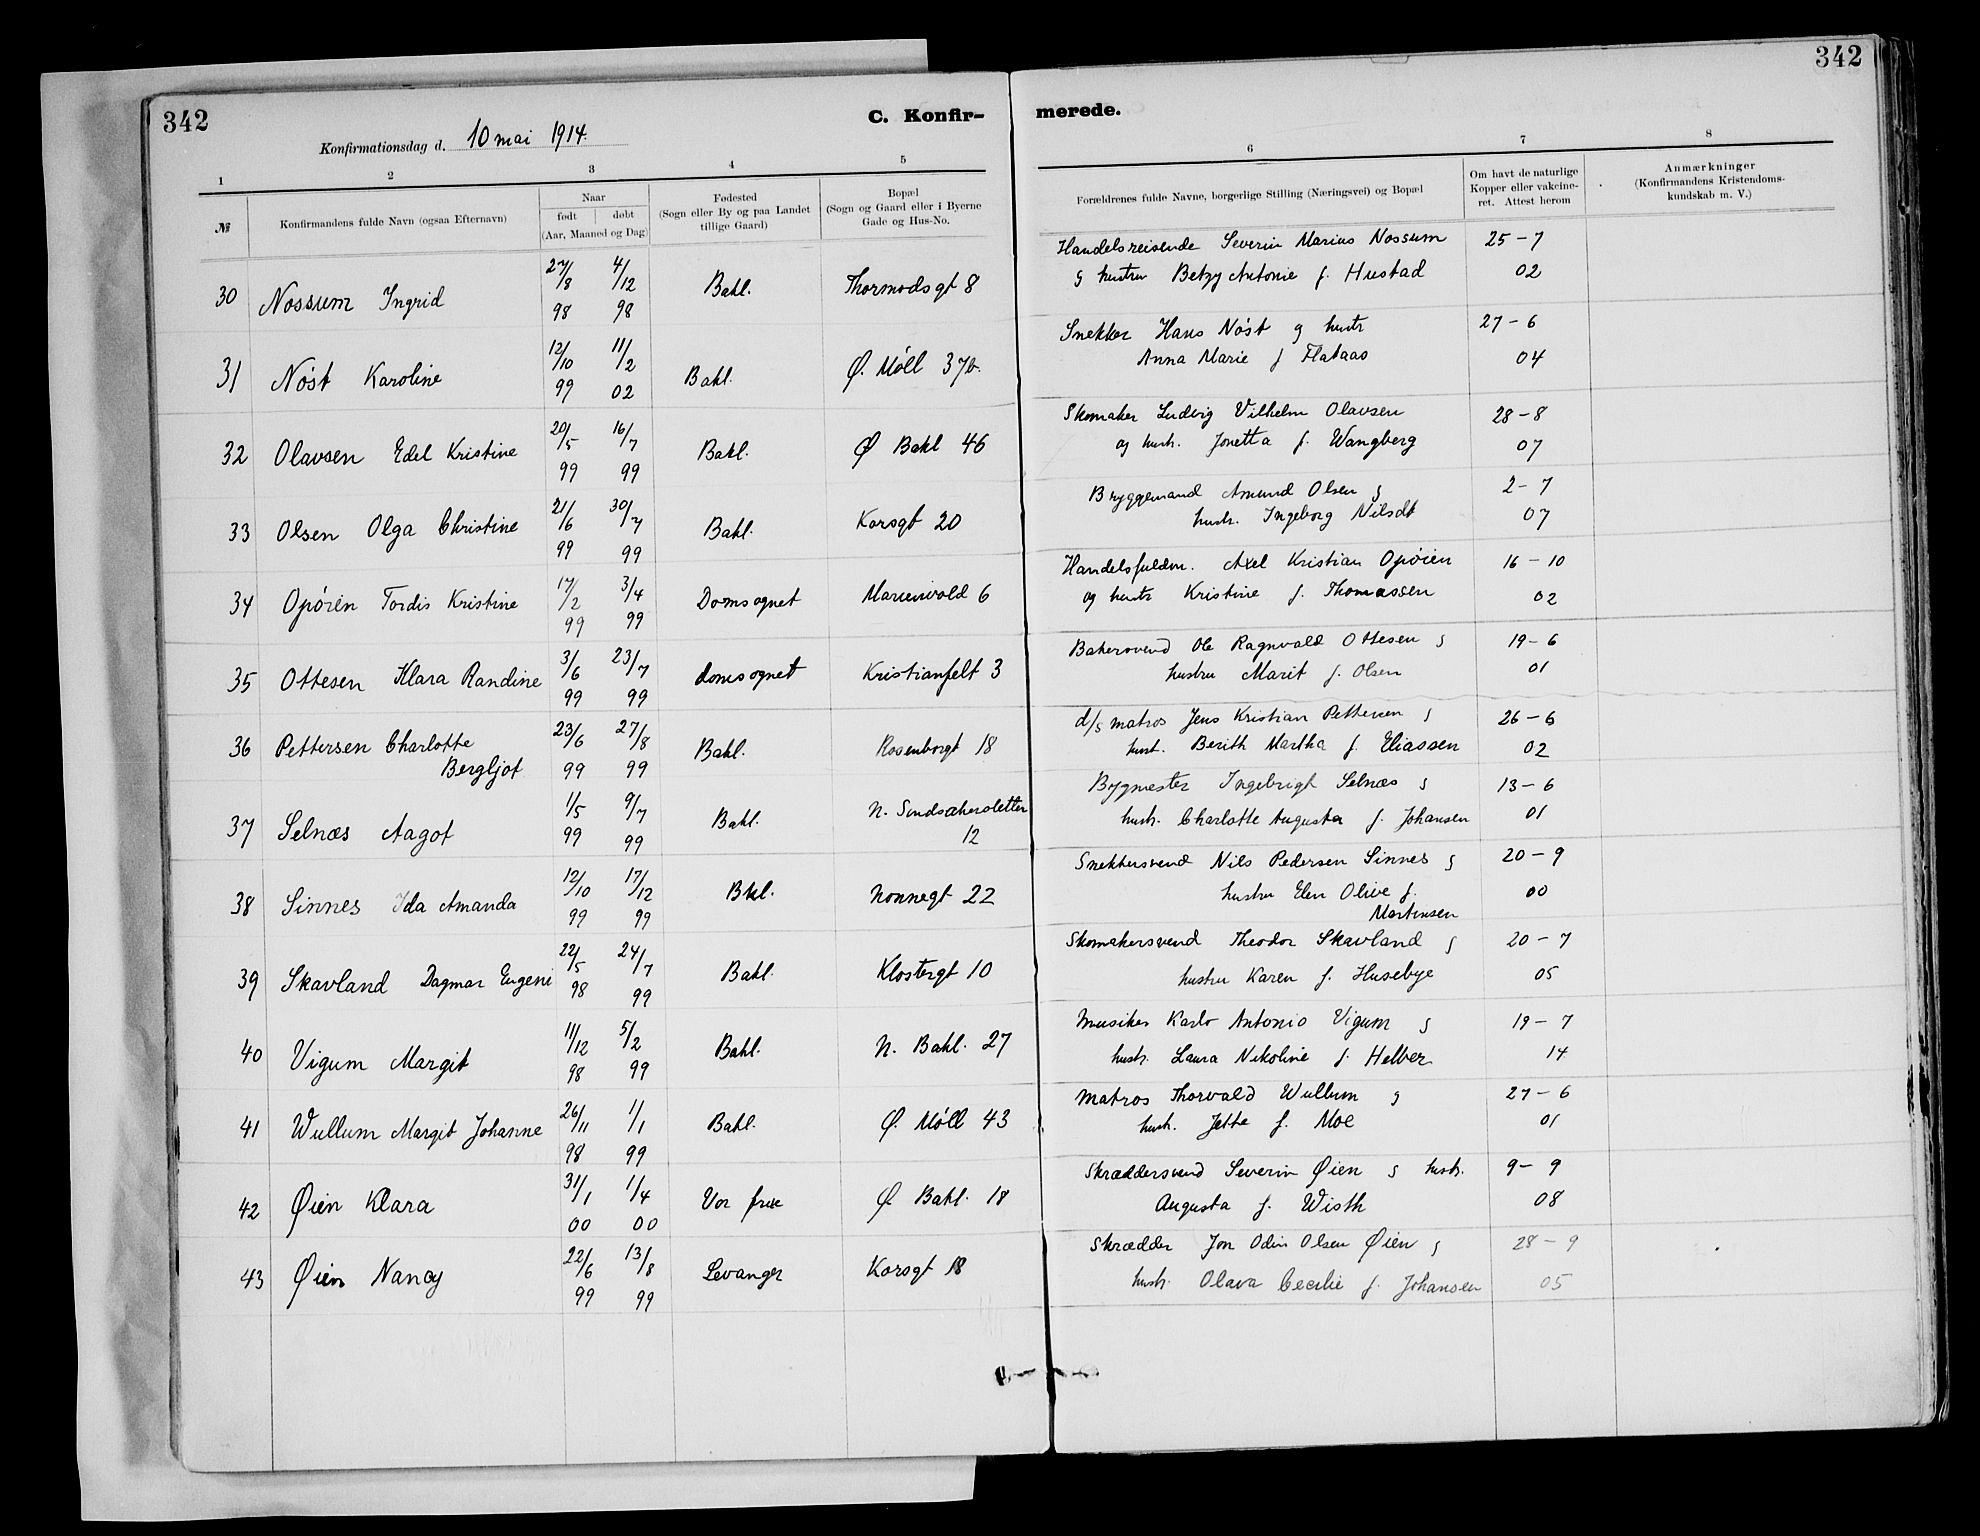 342
342
C. Konfir-
merede.
Konfirmationsdag d. 10 mai 1914.
1 2 3 4 5
6 7 8
№
Konfirmandens fulde Navn (ogsaa Efternavn)
Naar
født døbt
(Aar, Maaned og Dag)
Fødested
(Sogn eller By og paa Landet
tillige Gaard)
Bopæl
(Sogn og Gaard eller i Byerne
Gade og Hus-No.
Forældrenes fulde Navne, borgerlige Stilling (Næringsvei) og Bopæl
Om havt de naturlige
Kopper eller vakcine-
ret. Attest herom
Anmærkninger
(Konfirmandens Kristendoms-
kundskab m. V.)
30 Nossum Ingrid 27/8 98 4/12 98 Bakl. Thormodsgt 8
Handelsreisende Severin Marius Nossum 25-7
g hustru Betzy Antonie f. Hustad 02
31 Nøst Karoline 12/10 99 11/2 02 Bakl. Ø. Møll 37b.
Snekker Hans Nøst g hustr 27-6
Anna Marie f Flataas 04
32 Olavsen Edel Kristine 20/5 99 16/7 99 Bakl. Ø Bakl 46
Skomaker Ludvig Vilhelm Olavsen 28-8
og hustr. Jonetta f. Wangberg 07
33 Olsen Olga Christine 21/6 99 30/7 99 Bakl. Korsgt 20
Bryggemand Amund Olsen g 2-7
hustr. Ingeborg Nilsdt 07
34 Opøien Tordis Kristine 17/2 99 3/4 99 Domsognet Marienvold 6
Handelsfuldm. Axel Kristian Opøien 16-10
og hustr Kristine f. Thomassen 02
35 Ottesen Klara Randine 3/6 99 23/7 99 domsognet Kristianfelt 3
Bakersvend Ole Ragnvald Ottesen g 19-6
hustru Marit f. Olsen 01
36 Pettersen Charlotte 23/6 99 27/8 99 Bakl. Rosenborgt 18
Bergljot
d/s matros Jens Kristian Pettersen g 26-6
hust. Berith Martha f. Eliassen 02
37 Selnæs Aagot 1/5 99 9/7 99 Bakl. N.
12
Bygmester Ingebrigt Selnæs g 13-6
hustr. Charlotte Augusta f. Johansen 01
38 Sinnes Ida Amanda 12/10 99 17/12 99 Bkl. Nonnegt 22
Snekkersvend Nils Pedersen Sinnes g 20-9
hustru Elen Olive f. 00
Martinsen
39 Skavland Dagmar Eugeni 22/5 98 24/7 99 Bakl. Klostergt 10
Skomakersvend Theodor Skavland g 20-7
hustru Karen f. Husebye 05
40 Vigum Margit 11/12 98 5/2 99 Bakl. N. Bakl. 27
Musiker Karlo Antonio Vigum g 19-7
hustr. Laura Nikoline f. Helber 14
41 Wullum Margit Johanne 26/11 98 1/1 99 Bakl. Ø. Møll 43
Matros Thorvald Wullum g 27-6
hustr. Jette f. Moe 01
42 Øien Klara 31/1 00 1/4 00 Vor frue Ø Bakl. 18
Skræddersvend Severin Øien g hustr. 9-9
Augusta f. Wisth 08
43 Øien Nancy 22/6 99 13/8 99 Levanger Korsgt 18
Skrædder Jon Odin Olsen Øien g 28-9
hustr. Olava Cecilie f. Johansen 05